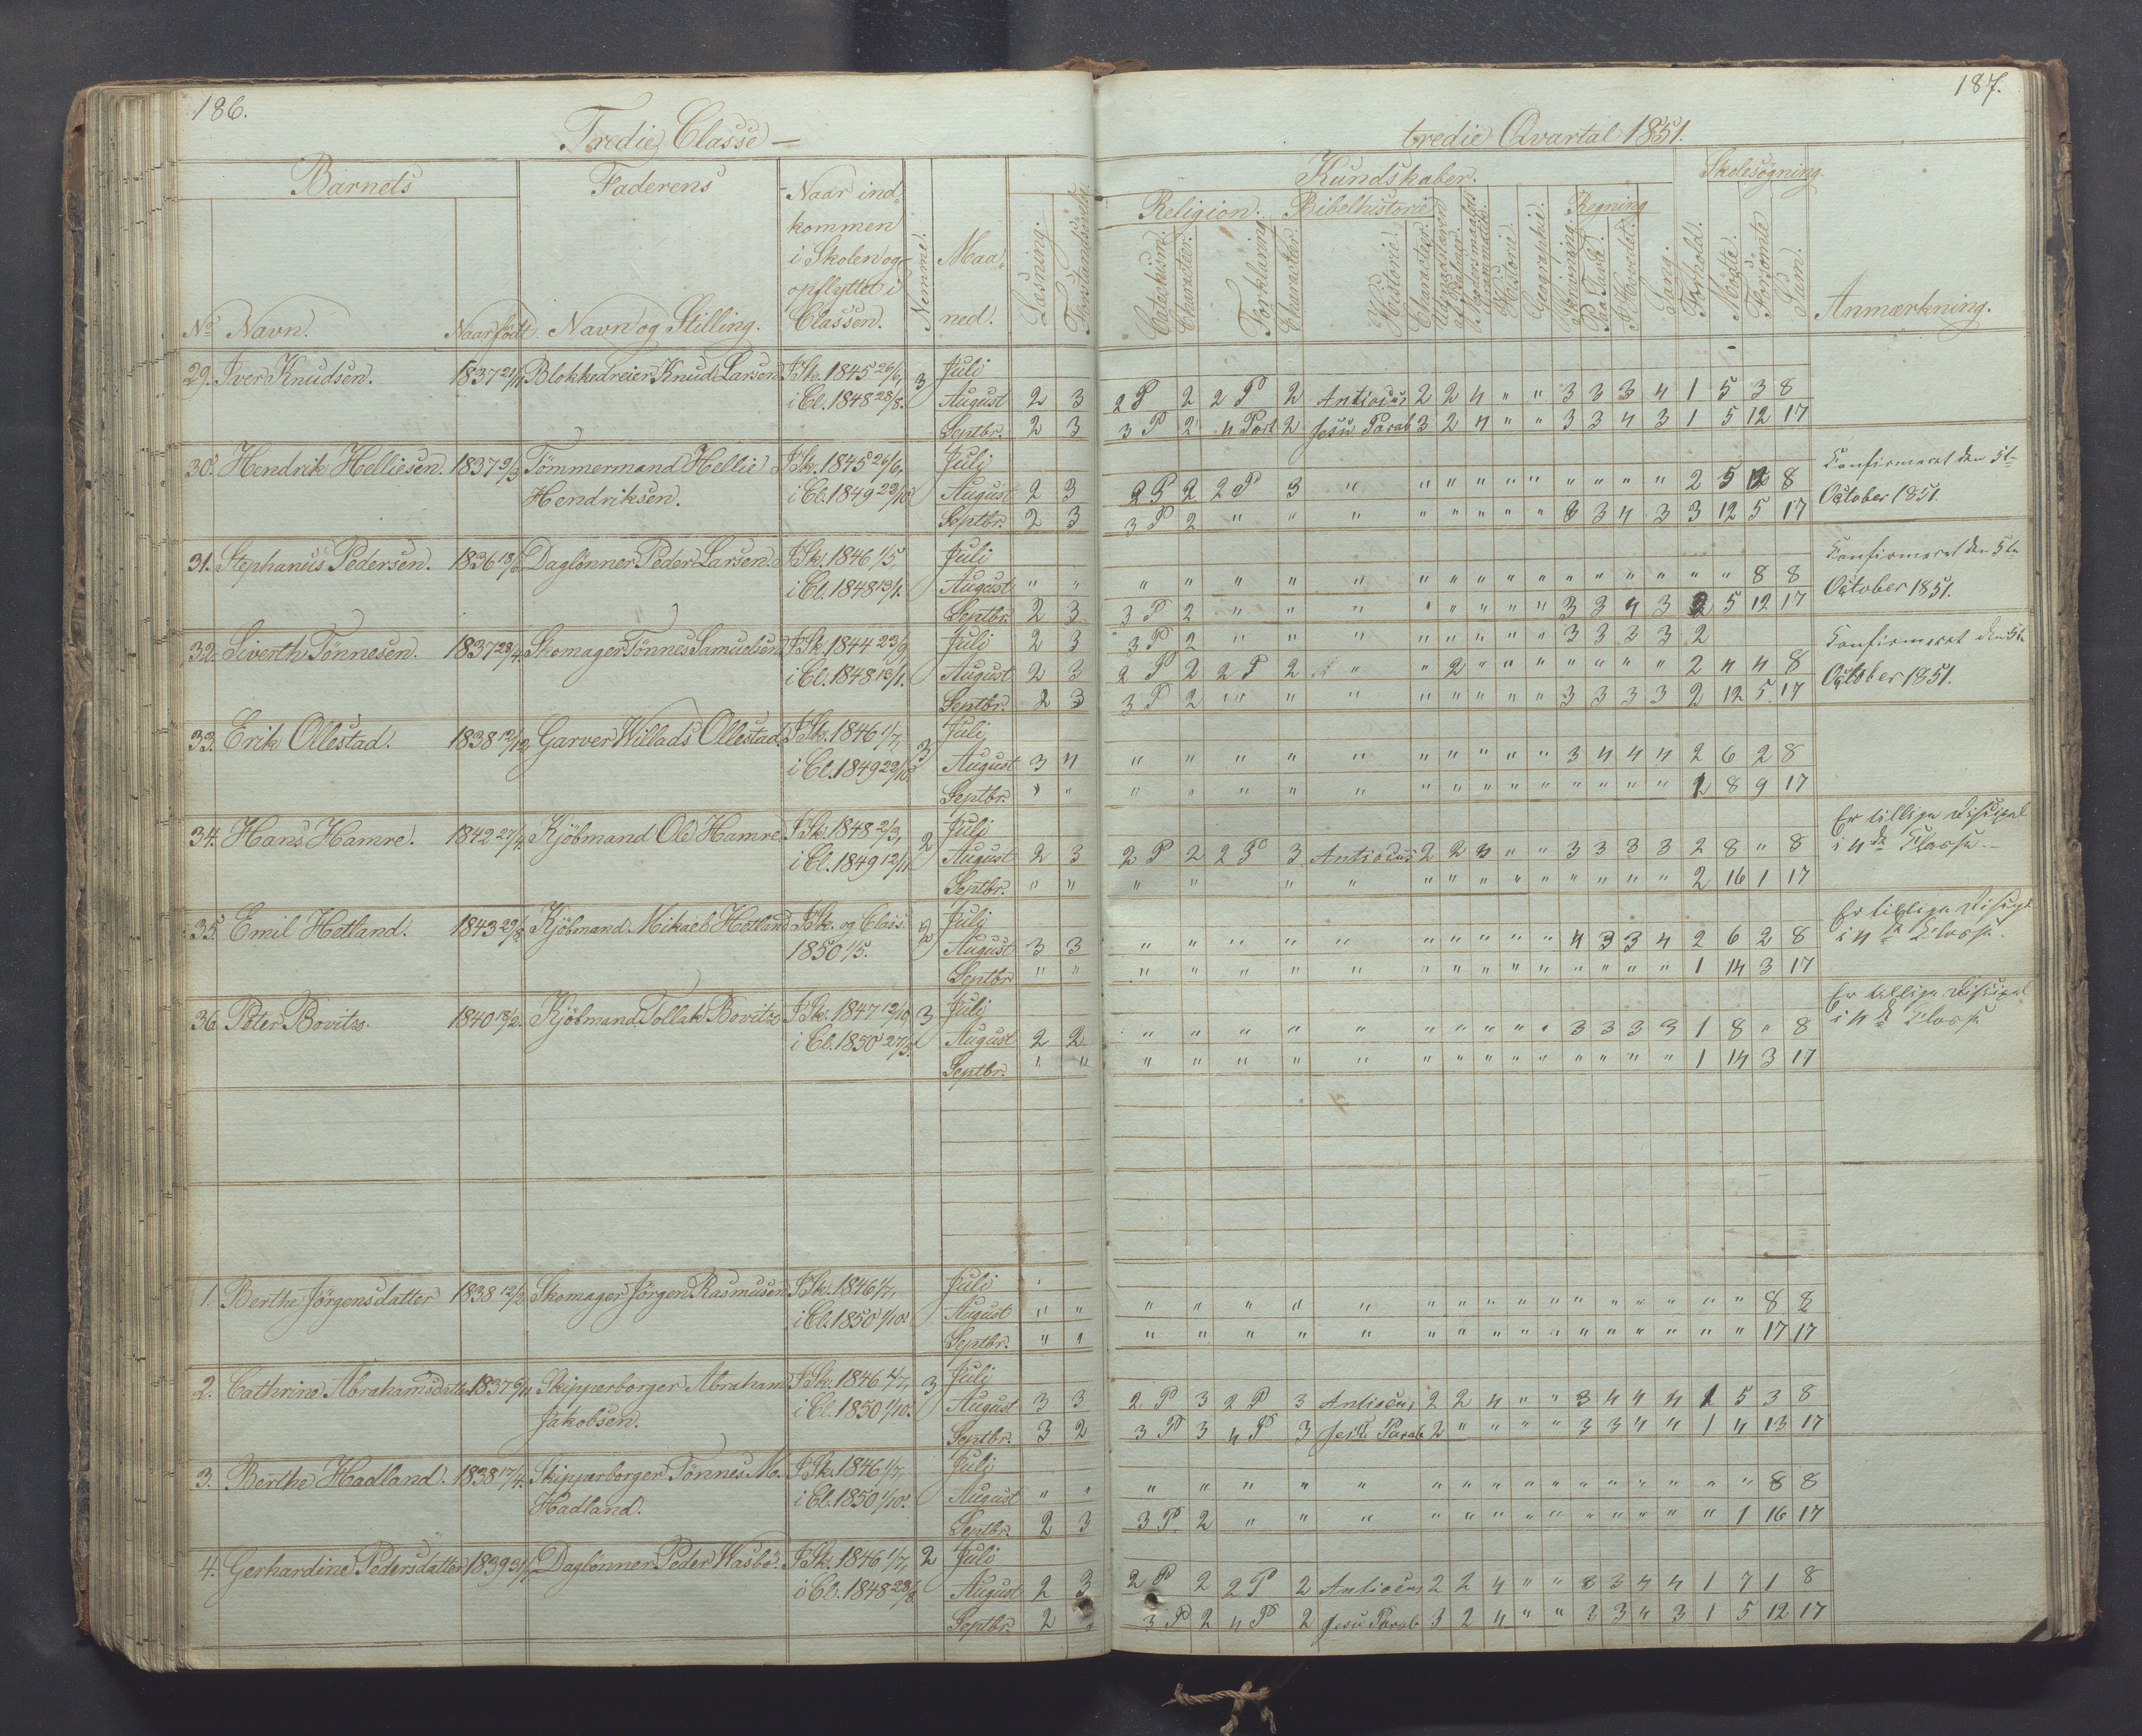 186.
Tredie Classe —
Barnets
Faderens
Naar ind-
kommen
i Skolen og
opflyttet i
Classen.
Nemme.
Maa-
ned.
Læsning.
Forstandsøvelse.
No Navn. Naar født. Navn og Stilling.
187.
tredie Qvartal 1851.
Kundskaber.
Skolesøgning.
Religion. Bibelhistorie
Regning
Catechism. Character. Forklaring Character. Historie. Character. Historie. Geographie. Skrivning. Paa Tavle. I Hovedet. Sang. Forhold. Mødte. Forsømte Sum. Anmærkning.
29. Iver Knudsen. 1837 21/11 Blokkedreier Knud Larsen I Sk. 1845 26/6, 3 Juli
i Cl. 1848 28/8. August 2 3 2 P 2 2 P 2 Antiocus 2 2 4 " " 3 3 3 4 1 5 3 8
Septbr. 2 3 3 P 2 4 Part 2 Jesu Parab 3 2 4 " " 3 3 4 3 1 5 12 17
30. Hendrik Helliesen. 1837 9/3 Tömmermand Hellie I Sk. 1845 26/6, Juli
Hendriksen. i Cl. 1849 22/10 August 2 3 2 P 2 2 P 3 " " " " " " " " " " 2 5 8
Septbr. 2 3 3 P 2 " " " " " " " " 3 3 4 3 3 12 5 17
Confirmeret den 5te
October 1851.
31. Stephanus Pedersen. 1836 Daglønner Peder Larsen. I Sk. 1846 1/5, Juli
i Cl. 1848 13/1. August " " " " " " " " " " " " " " " " " " 8 8
Septbr. 2 3 3 P 2 " " " " " " " " 3 3 4 3 2 5 12 17
Confirmeret den 5te
October 1851.
32. Siverth Tönnesen. 1837 28/4. Skomager Tönnes Samuelsen I Sk. 1844 23/9 Juli 2 3 3 P 2 " " " " " " " " 3 3 3 3 2
i Cl. 1848 13/1. August 2 3 2 P 2 2 P 2 " " 2 " " " " " " " 2 4 4 8
Septbr. 2 3 3 P 2 " " " " " " " " 3 3 3 3 2 12 5 17
Confirmeret den 5te
October 1851.
33. Erik Ollestad. 1838 12/12 Garver Willads Ollestad. I Sk. 1846 1/7, 3 Juli
i Cl. 1849 22/10 August 3 4 " " " " " " " " " " 3 4 4 4 2 6 2 8
Septbr. " " " " " " " " " " " " " " " " 1 8 9 17
34. Hans Hamre. 1842 27/4. Kjöbmand Ole Hamre I Sk. 1848 2/3, 2 Juli
i Cl. 1849 12/11 August 2 3 2 P 2 2 P 3 Antiocus 2 2 3 " " 3 3 3 3 2 8 " 8
Septbr. " " " " " " " " " " " " " " " 2 16 1 17
Er tillige Discipel
i 4de Classe.
35. Emil Hetland. 1843 29/8 Kjöbmand Mikael Hetland I Sk. og Class. 2 Juli
1850 1/5. August 3 3 " " " " " " " " " " 4 3 3 4 2 6 2 8
Septbr " " " " " " " " " " " " " " " " 1 14 3 17
Er tillige Discipel
i 4de Classe.
36. Peter Bovitz. 1840 18/2. Kjöbmand Tollak Bovitz I Sk. 1847 12/10 3 Juli
i Cl. 1850 27/5. August 2 2 " " " " " " " " " " 3 3 3 3 1 8 " 8
Septbr. " " " " " " " " " " " " " " " " 1 14 3 17
Er tillige Discipel
i 4de Classe
1. Berthe Jörgensdatter 1838 12/2 Skomager Jörgen Rasmusen I Sk. 1846 1/7, Juli
i Cl. 1850 1/10. August " " " " " " " " " " " " " " " " " " 8 8
Septbr. " " " " " " " " " " " " " " " " " " 17 17
2. Cathrine Abrahamsdatter 1837 6/11 Skipperborger Abraham I Sk. 1846 4/7, 3 Juli
Jakobsen. i Cl. 1850 1/10. August 3 3 2 P 3 2 P 3 Antiocus 2 2 4 " " 3 4 4 4 1 5 3 8
Septbr. 3 2 3 P 3 4 P 3 Jesu Parab 2 " " " " 3 3 4 " 1 4 13 17
3. Berthe Hadland. 1838 17/4. Skipperborger Tönnes M. I Sk. 1846 1/7, Juli
Hadland. i Cl. 1850 1/10. August " " " " " " " " " " " " " " " " " " 8 8
Septbr. 2 3 3 P. 2 " " " " " " " " " " " " " 1 16 17
4. Gerhardine Pedersdatter 1839 Daglønner Peder Wasbö. I Sk. 1846 1/7, 2 Juli
i Cl. 1848 28/8 August 2 3 2 P 2 2 P 2 Antiocus 2 2 4 " " 3 3 4 4 1 7 1 8
Septbr. 2 3 P 2 4 P 2 Jesu Parab 3 2 4 " " 3 3 4 3 1 5 12 17